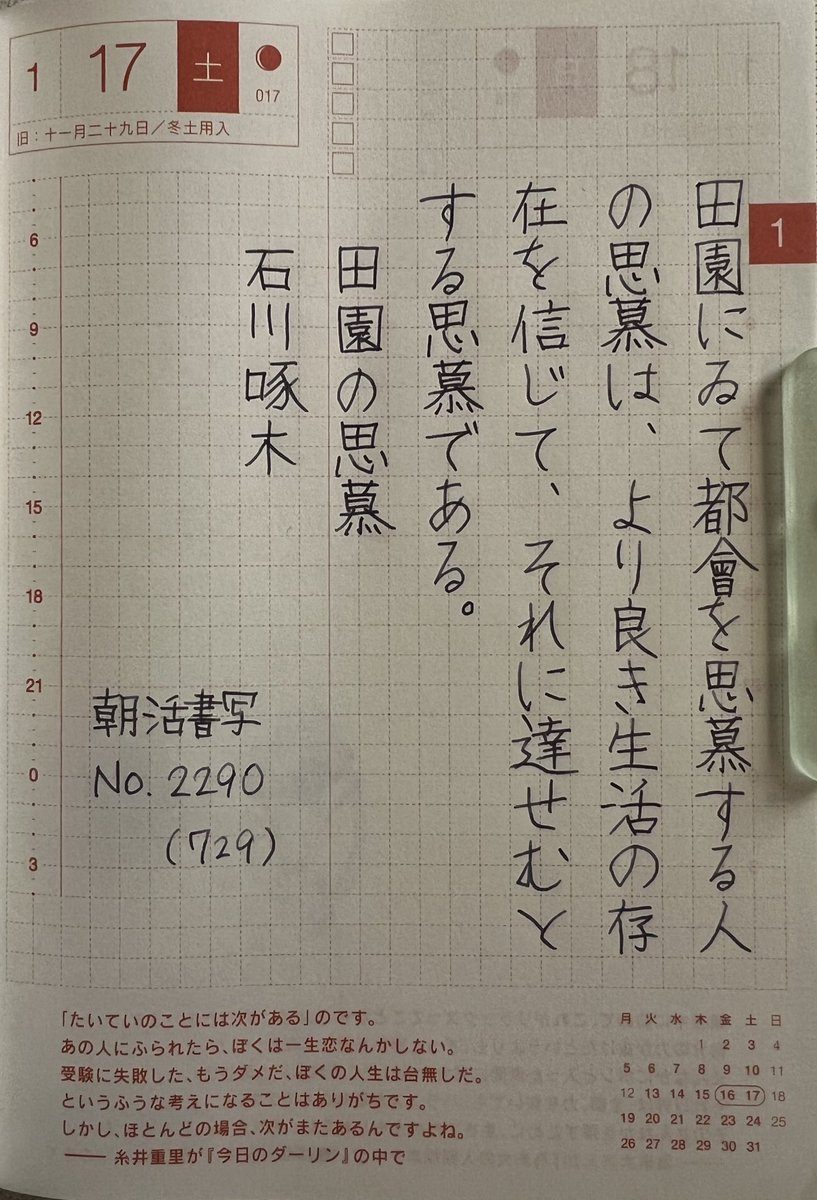 1 17 土
017
旧：十一月二十九日／冬土用入
1
田園にゐて都會を思慕する人
の思慕は、より良き生活の存
在を信じて、それに達せむと
する思慕である。
田園の思慕
石川啄木
朝活書写
No. 2290
(729)
6
9
12
15
18
21
0
3
「たいていのことには次がある」のです。
あの人にふられたら、ぼくは一生恋なんかしない。
受験に失敗した、もうダメだ、ぼくの人生は台無しだ。
というふうな考えになることはありがちです。
しかし、ほとんどの場合、次がまたあるんですよね。
—— 糸井重里が『今日のダーリン』の中で
月 火 水 木 金 土 日
1 2 3 4
5 6 7 8 9 10 11
12 13 14 15 16 17 18
19 20 21 22 23 24 25
26 27 28 29 30 31